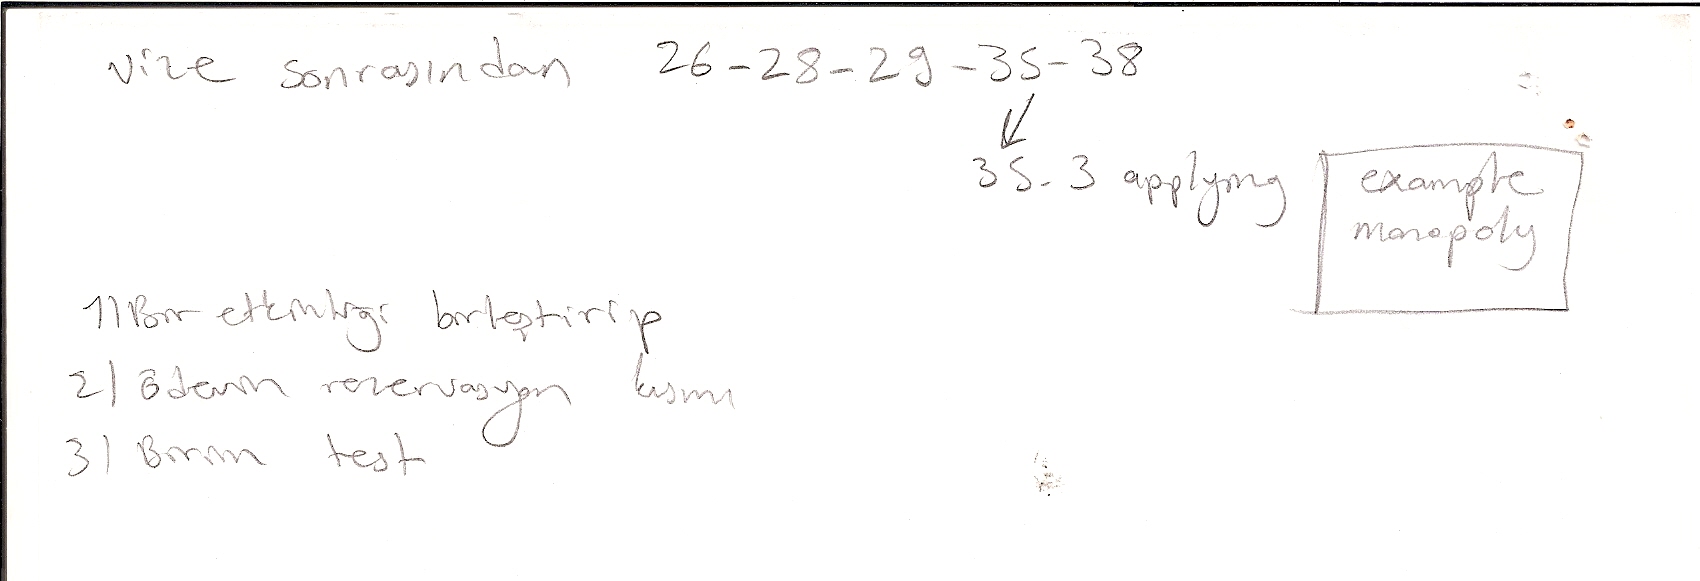 vize sonrasından 26-28-29-35-38
35.3 applying
example
monopoly
1) Bir etkinliği birleştirip
2) Ödevin rezervasyon kısmı
3) Birim test